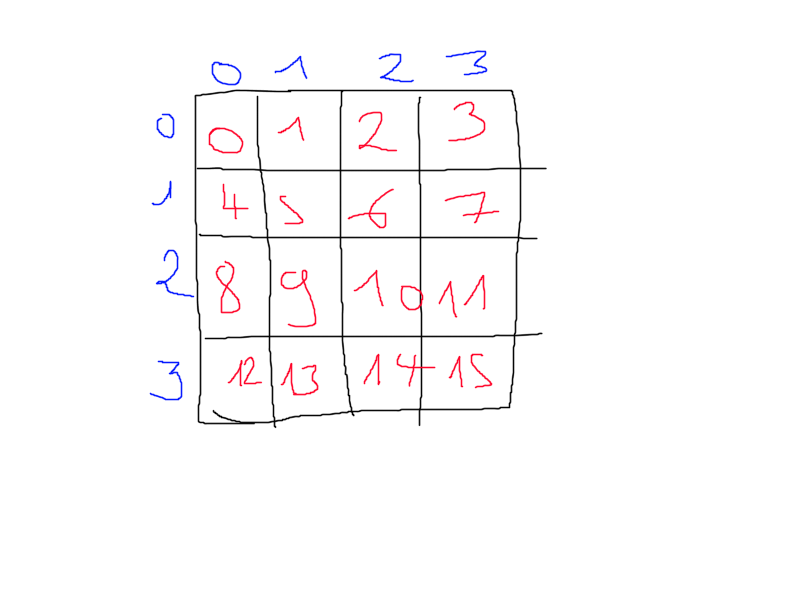 0 1 2 3
0 0 1 2 3
1 4 5 6 7
2 8 9 10 11
3 12 13 14 15